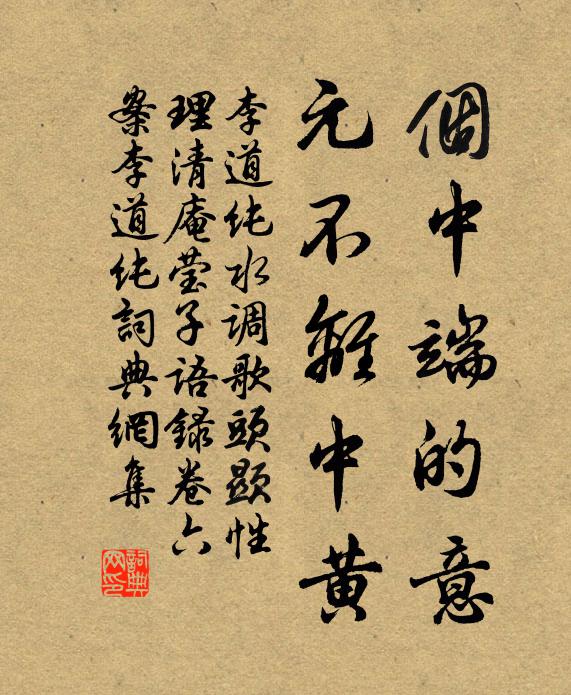 個中端的意
元不離中黄
李道纯水调歌頭顯性
理清庵莹子語録卷六
案李道纯詞典網集
詞典网印